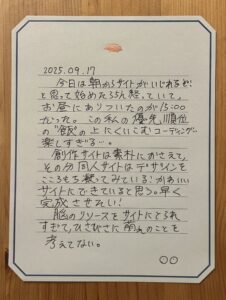 2025.09.17
今日は朝からサイトがいじれるぞ!
と思って始めたら5h経っていて、
お昼にありついたのが15:00
だった。この私の優先順位
の"飯"の上にくいこむコーディング…
楽しすぎる…。
創作サイトは素朴におさえて、
その分同人サイトはデザインを
こころもち凝ってみている!かわいい
サイトにできていると思う。早く
完成させたい!
脳のリソースをサイトにとられ
すぎて、ひさびさに のことを
考えてない。
○○